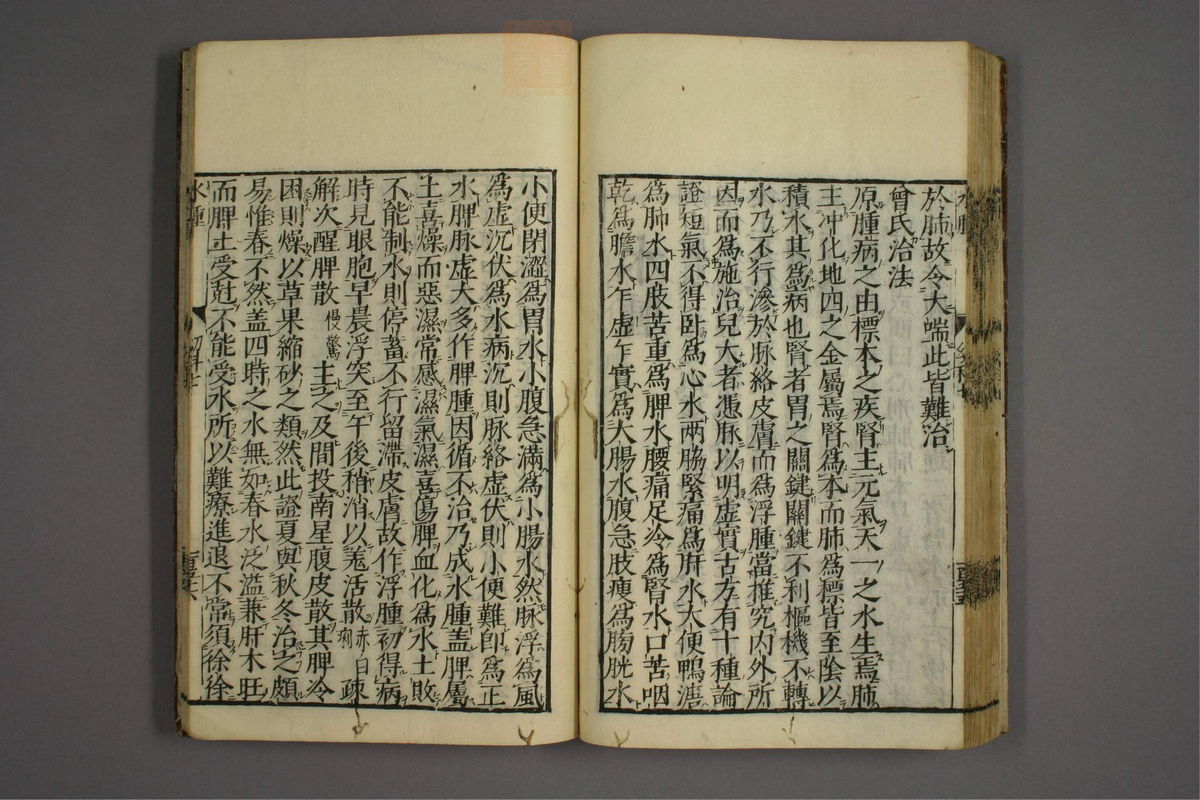 於肺故令大喘此皆難治
曾氏治法
原腫病之由標本之疾腎主元氣天一之水生焉肺
主冲化地四之金屬焉腎爲本而肺爲標皆至陰以
積水其爲病也腎者胃之關鍵關鍵不利樞機不轉
水乃不行滲於脉絡皮膚而爲浮腫當推究内外所
因而爲施治兒大者憑脉以明虛實古方有十種論
證短氣不得卧爲心水两脇緊痛爲肝水大便鴨溏
爲肺水四肢苦重爲脾水腰痛足冷爲腎水口苦咽
乾爲膽水乍虛乍實爲大腸水腹急肢瘦爲膀胱水
小便閉澀爲胃水小腹急滿爲小腸水然脉浮爲風
爲虛沉伏爲水病沉則脉絡虛伏則小便難即爲正
水脾脉虛大多作脾腫因循不治乃成水腫盖脾屬
土喜燥而惡濕常感濕氣濕喜傷脾血化爲水土敗
不能制水則停蓄不行留滯皮膚故作浮腫初得病
時見眼胞早晨浮突至午後稍消以羗活散赤白痢疎
解次醒脾散慢驚主之及間投南星腹皮散其脾冷
困則燥以草果縮砂之類然此證夏與秋冬治之頗
易惟春不然盖四時之水無如春水泛濫兼肝木旺
而脾土受尅不能受水所以難療進退不常須徐徐
水腫